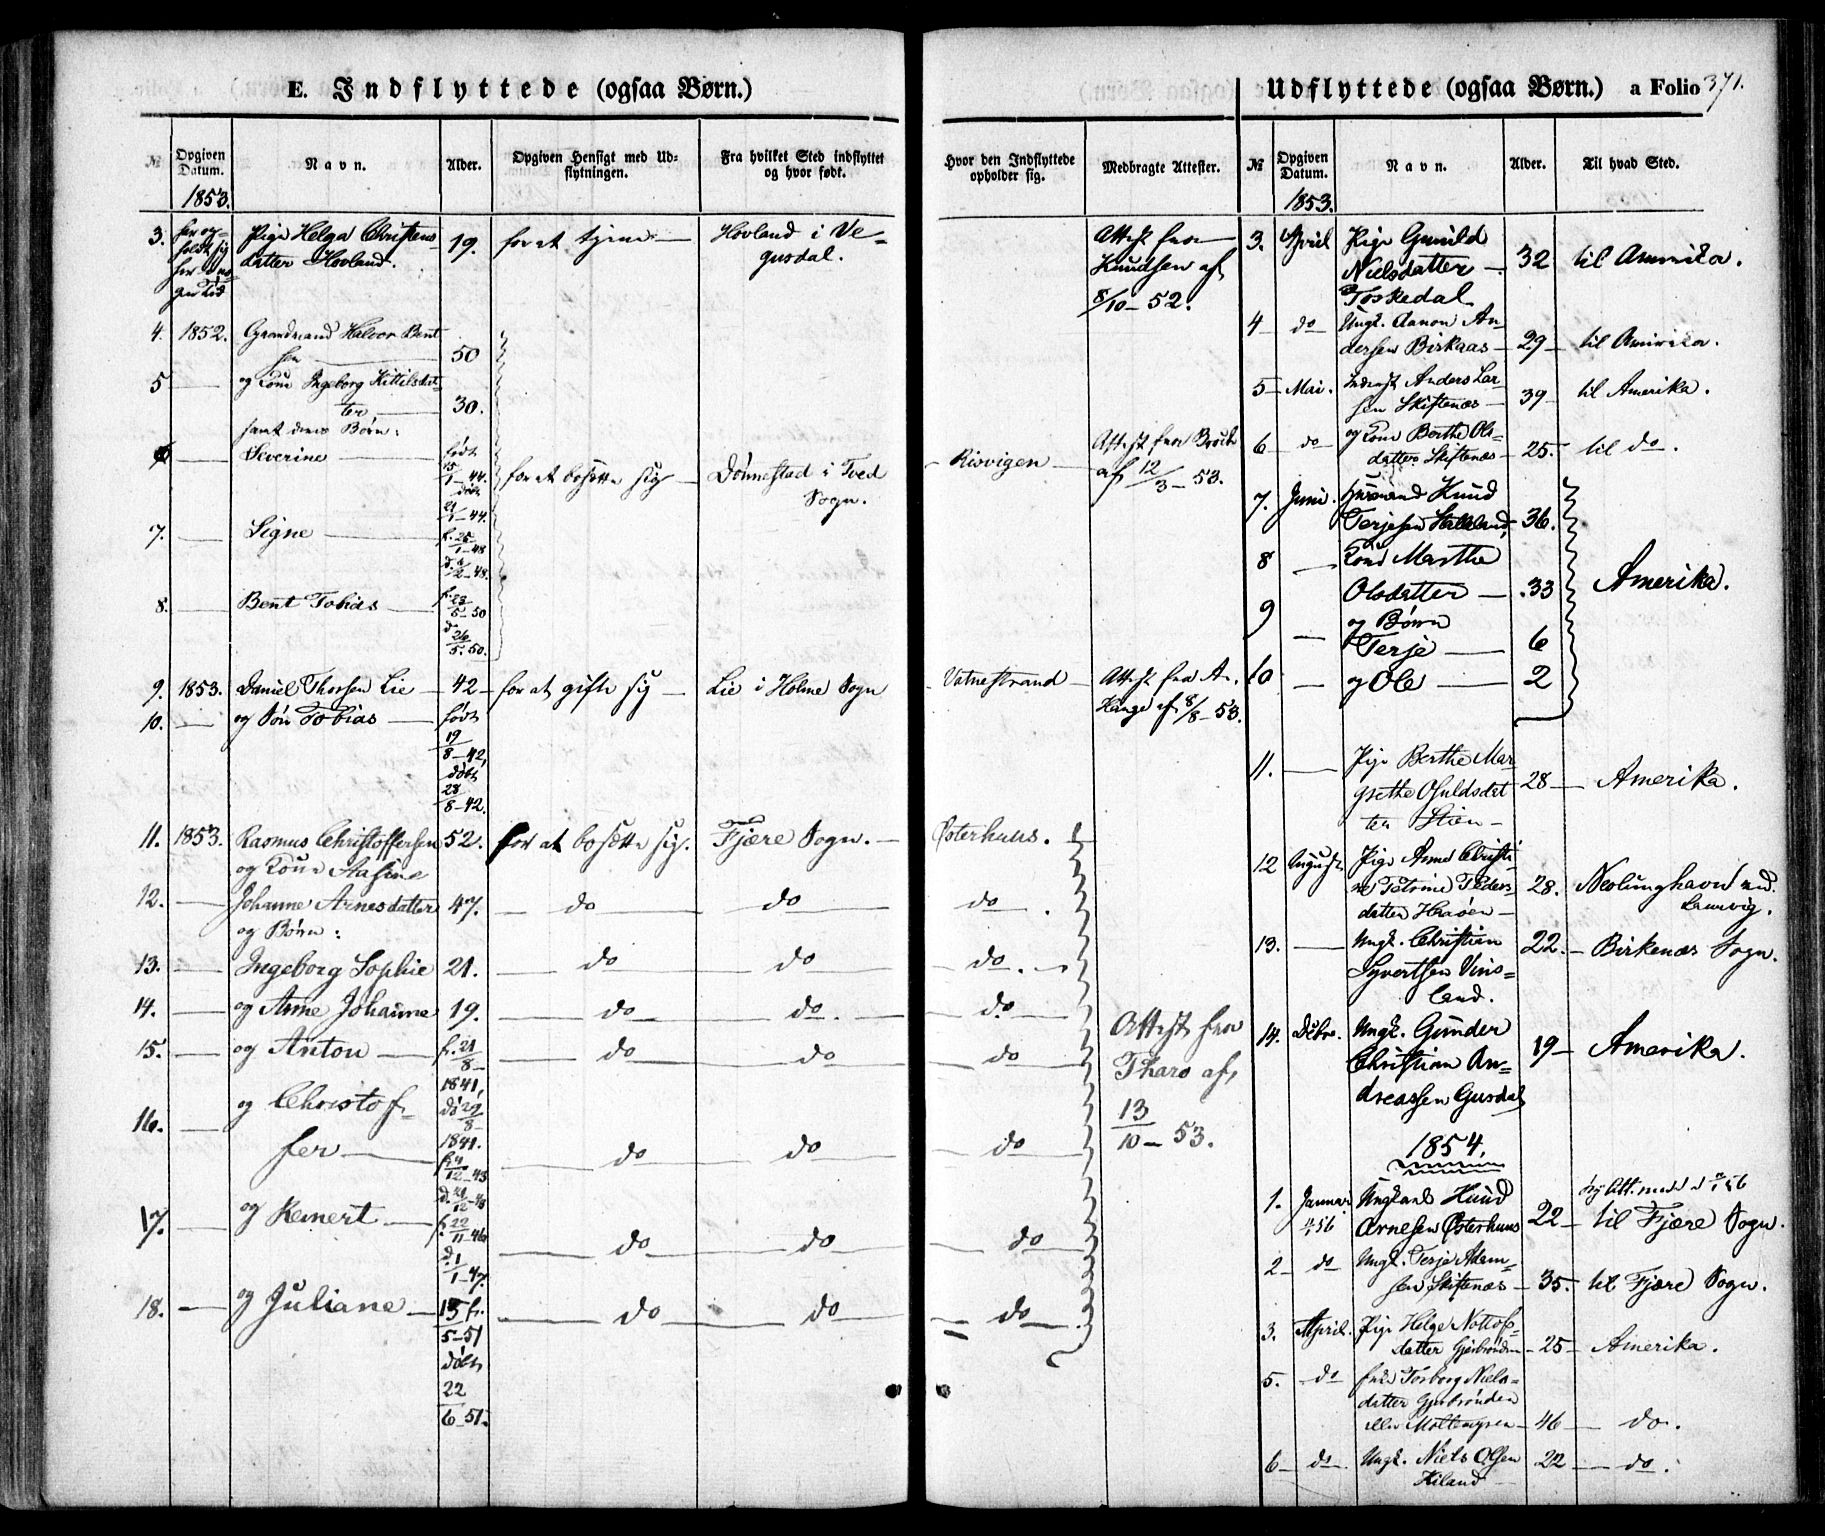 E. Indflyttede (ogsaa Børn.)
№
Opgiven Datum.
Navn.
Alder.
Opgiven Hensigt med Ud-
flytningen.
Fra hvilket Sted indflyttet
og hvor født.
Hvor den Indflyttede
opholder sig.
Medbragte Attester.
1853.
3. Pige Helga Christens 19. for at tjene Hovland i Ve- Attest fra
datter Hovland. gusdal. Knudsen af
8/10-52.
4. 1852. Gaardmand Halvor Bent
sen 50
5 og Kone Ingeborg Kittilsdat-
ter 30.
samt deres Børn:
6 Severine født 15/1-44. døbt 21/1-44. for at bosætte sig Dønnestad i Tved Sogn. Risvigen Attest fra Broch af 12/3-53.
7. Signe f. 25/1-48 d. 2/2-48.
8. Bent Tobias f. 23/5-50 d. 26/5.50.
9. 1853. Daniel Thorsen Lie 42 for at gifte sig Lie i Holme Sogn Vatnestrand Attest fra A.
10. og Søn Tobias født Hauge af 8/8-53.
19/8-42,
døbt
28/8-42.
11. 1853. Rasmus Christoffersen 52. for at bosætte sig. Fjære Sogn. Østerhuus.
og Kone Aasine
12. Johanne Arnesdatter 47. do do do
og Børn:
13. Ingeborg Sophie 21. do do do.
14. og Anne Johanne 19. do do. do
15. og Anton f. 21/8 do do do Attest fra
1841, Tharo af
16. og Christof- dø 29/8 13/10-53.
fer 1841. do do do
f. 4/12-43
d. 21/12-43
17. og Reinert f. 22/11-46 do do do
d. 1/1-47.
18. og Juliane 15 f. do do do
5-51
døbt
22
6-51.
Udflyttede (ogsaa Børn.) a Folio 371.
№
Opgiven Datum.
Navn.
Alder.
Til hvad Sted.
1853.
3. April Pige Gunild
Nielsdatter 32 til Amerika.
Toskedal
4 do Ungk. Aanon An-
dersen Birkaas 29 til Amerika.
5 Mai. Inderst Anders Lar-
sen Skiftenæs 39 til Amerika.
6 do og Kone Berthe Ols-
datter Skiftenæs 25. til do.
7. Juni. Husmand Knud
Terjesen 36.
8 Kone Marthe
Olsdatter 33 Amerika.
9 og Børn
Terje 6
10 og Ole 2
11. Pige Berthe Mar-
grethe Osuldsdat 28 Amerika.
ter Stien
12 August Pige Anne Christi
ne Petrine Peders 28. Neslunghavn ved
datter Laurvig.
13. Ungk. Christian 22. Birkenæs Sogn.
Syvertsen Vins-
land.
14. Debr. Ungk. Gunder
Christian An- 19 Amerika.
dreassen Gusdal
1854.
1. Januar Ungkarl Knud
Arnesen Østerhuus 22 til Fjære Sogn.
2 do Ungk. Terje Adam-
sen Skiftenæs 35. til Fjære Sogn.
3. April. Pige Helge Nottof-
datter 25 Amerika.
5. do Torborg Niels-
datter
eller 46 do.
6 do Ungk. Niels Olsen 22 do.
Kiland